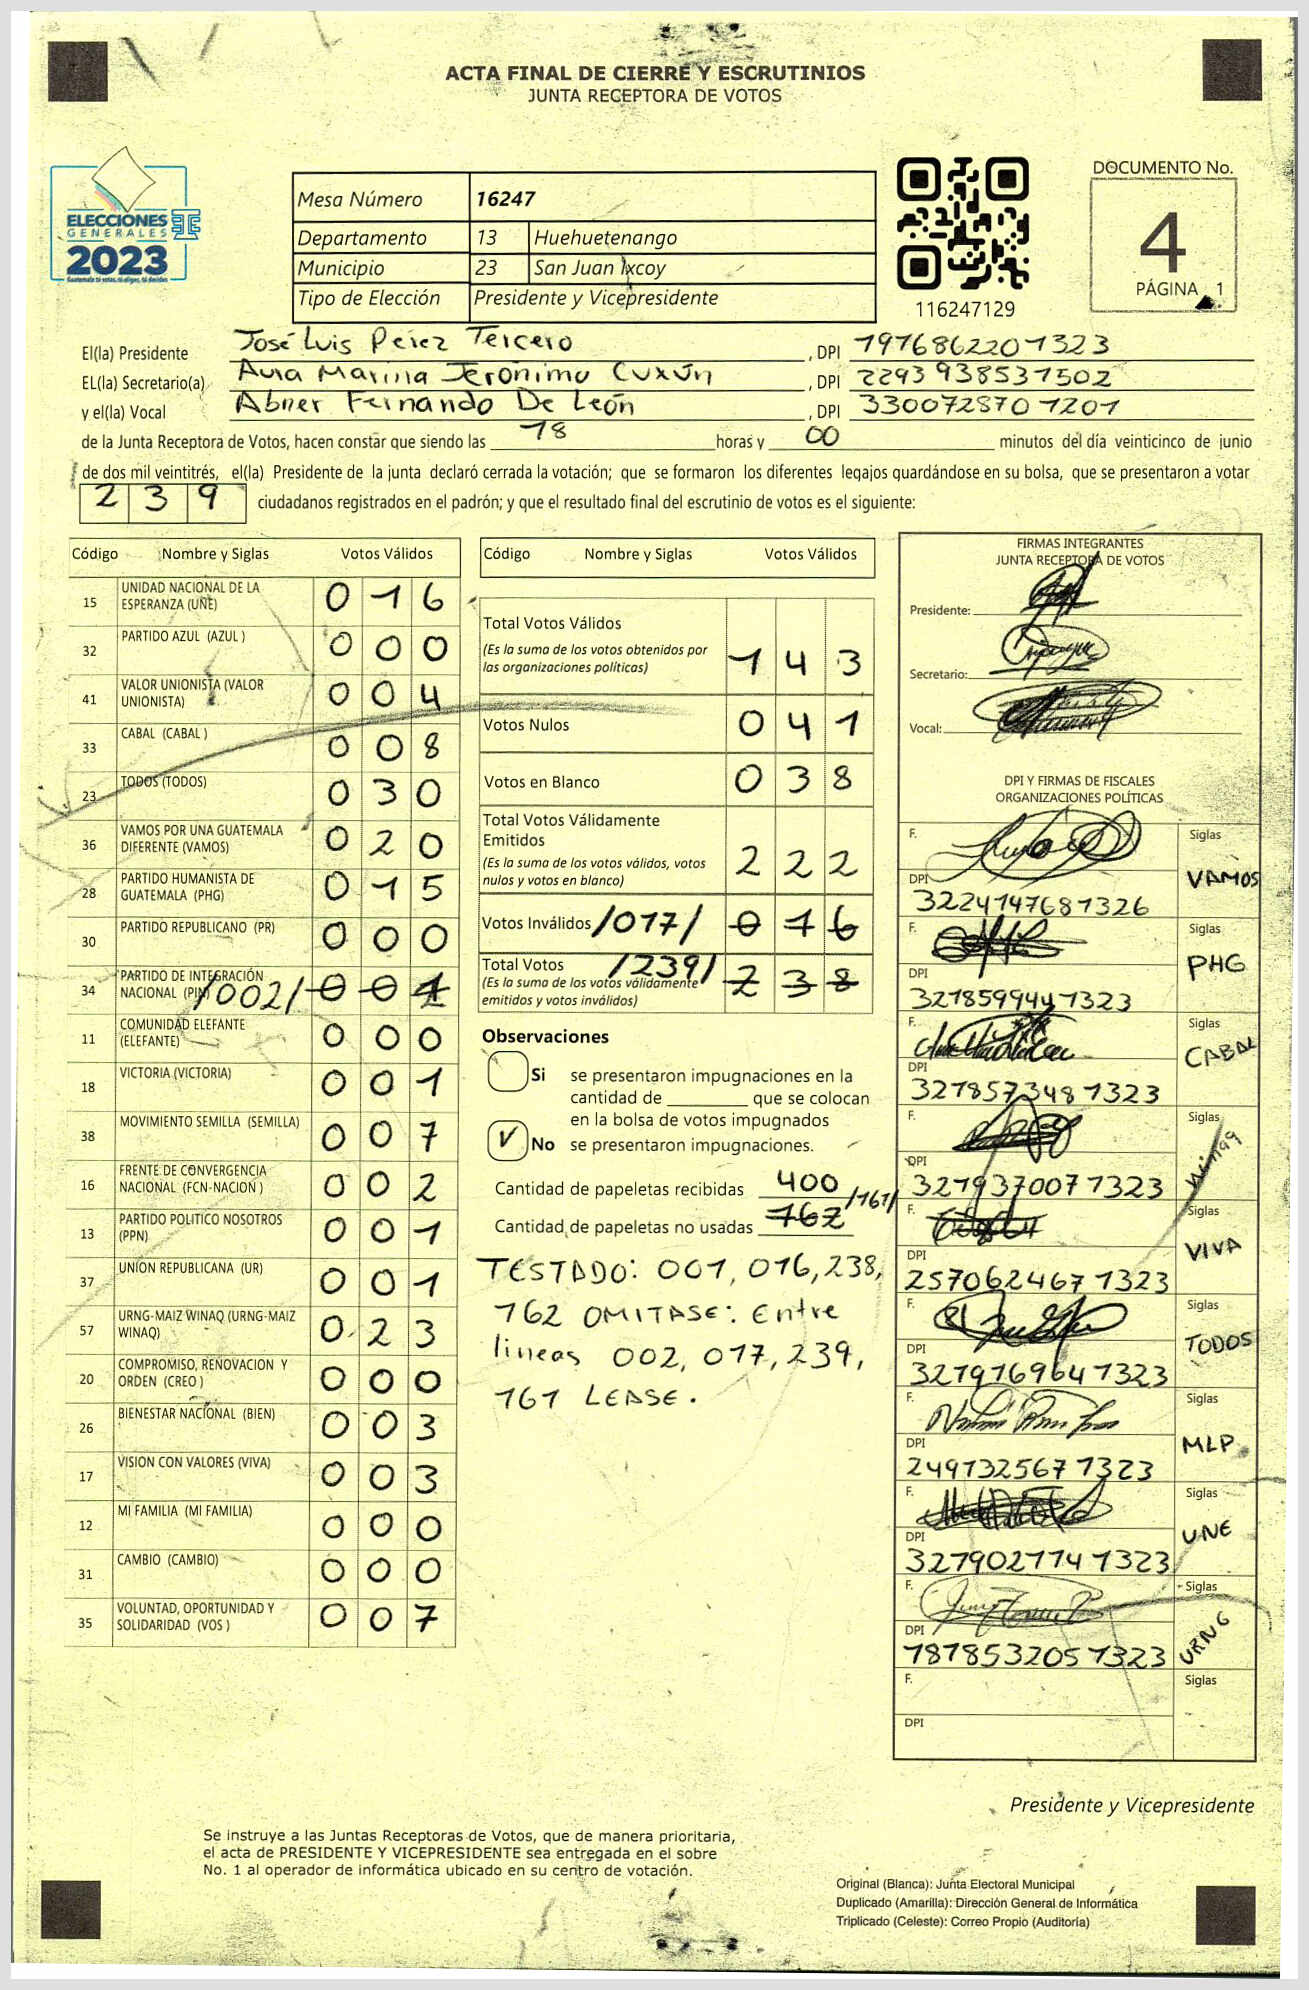 ACTA FINAL DE CIERRE Y ESCRUTINIOS
JUNTA RECEPTORA DE VOTOS
ELECCIONES
GENERALES
2023
Mesa Número 16247
Departamento 13 Huehuetenango
Municipio 23 San Juan Ixcoy
Tipo de Elección Presidente y Vicepresidente
116247129
DOCUMENTO No.
4
PÁGINA 1
El(la) Presidente José Luis Pérez Tercero , DPI 1976862201323
EL(la) Secretario(a) Aura Marina Jerónimo Cuxún , DPI 2293938531502
y el(la) Vocal Abner Fernando De León , DPI 3300728701201
de la Junta Receptora de Votos, hacen constar que siendo las 18 horas y 00 minutos del día veinticinco de junio
de dos mil veintitrés, el(la) Presidente de la junta declaró cerrada la votación; que se formaron los diferentes legajos quardándose en su bolsa, que se presentaron a votar
239 ciudadanos registrados en el padrón; y que el resultado final del escrutinio de votos es el siguiente:
Código Nombre y Siglas Votos Válidos
15 UNIDAD NACIONAL DE LA ESPERANZA (UNE) 016
32 PARTIDO AZUL (AZUL ) 000
41 VALOR UNIONISTA (VALOR UNIONISTA) 004
33 CABAL (CABAL ) 008
23 TODOS (TODOS) 030
36 VAMOS POR UNA GUATEMALA DIFERENTE (VAMOS) 020
28 PARTIDO HUMANISTA DE GUATEMALA (PHG) 015
30 PARTIDO REPUBLICANO (PR) 000
34 PARTIDO DE INTEGRACIÓN NACIONAL (PIN) /002/ 001
11 COMUNIDAD ELEFANTE (ELEFANTE) 000
18 VICTORIA (VICTORIA) 001
38 MOVIMIENTO SEMILLA (SEMILLA) 007
16 FRENTE DE CONVERGENCIA NACIONAL (FCN-NACION ) 002
13 PARTIDO POLITICO NOSOTROS (PPN) 001
37 UNION REPUBLICANA (UR) 001
57 URNG-MAIZ WINAQ (URNG-MAIZ WINAQ) 023
20 COMPROMISO, RENOVACION Y ORDEN (CREO ) 000
26 BIENESTAR NACIONAL (BIEN) 003
17 VISION CON VALORES (VIVA) 003
12 MI FAMILIA (MI FAMILIA) 000
31 CAMBIO (CAMBIO) 000
35 VOLUNTAD, OPORTUNIDAD Y SOLIDARIDAD (VOS ) 007
Código Nombre y Siglas Votos Válidos
Total Votos Válidos 143
(Es la suma de los votos obtenidos por
las organizaciones políticas)
Votos Nulos 041
Votos en Blanco 038
Total Votos Válidamente
Emitidos 222
(Es la suma de los votos válidos, votos
nulos y votos en blanco)
Votos Inválidos /017/ 016
Total Votos /239/ 238
(Es la suma de los votos válidamente
emitidos y votos inválidos)
Observaciones
Si se presentaron impugnaciones en la
cantidad de que se colocan
en la bolsa de votos impugnados
V No se presentaron impugnaciones.
Cantidad de papeletas recibidas 400
Cantidad de papeletas no usadas 162 /161/
TESTADO: 001, 016, 238,
162 OMITASE: Entre
lineas 002, 017, 239,
161 LEASE.
FIRMAS INTEGRANTES
JUNTA RECEPTORA DE VOTOS
Presidente:
Secretario:
Vocal:
DPI Y FIRMAS DE FISCALES
ORGANIZACIONES POLÍTICAS
F. Siglas
DPI 3224147681326 VAMOS
F. Siglas
DPI 3218599441323 PHG
F. Siglas
DPI 3218573481323 CABAL
F. Siglas
DPI 3219370071323 Winaq
F. Siglas
DPI 2570624671323 VIVA
F. Siglas
DPI 3219169641323 TODOS
F. Siglas
DPI 2491325671323 MLP
F. Siglas
DPI 3219021141323 UNE
F. Siglas
DPI 1818532051323 URNG
F. Siglas
DPI
Presidente y Vicepresidente
Se instruye a las Juntas Receptoras de Votos, que de manera prioritaria,
el acta de PRESIDENTE Y VICEPRESIDENTE sea entregada en el sobre
No. 1 al operador de informática ubicado en su centro de votación.
Original (Blanca): Junta Electoral Municipal
Duplicado (Amarilla): Dirección General de Informática
Triplicado (Celeste): Correo Propio (Auditoría)